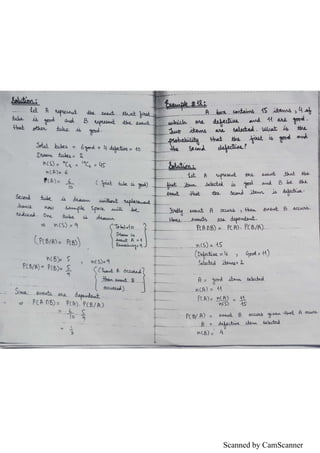 Solution:
Let A represent the event that first
tube is good and B represent the event
that other tube is good.
Total tubes = 6 good + 4 defective = 10
Drawn tubes = 2
n(S) = ¹⁰C₂ = 45
n(A) = 6
P(A) = 6/10 (first tube is good)
Second tube is drawn without replacement
hence now sample space will be
reduced. One tube is drawn.
⇒ n(S) = 9
(P(B/A) = P(B))
n(B) = 5 , n(S) = 9
P(B/A) = P(B) = 5/9
(event A occurred
then event B
occurred)
Since events are dependent
⇒ P(A∩B) = P(A). P(B/A)
= 6/10 . 5/9
= 1/3
Example # 18:
A box contains 15 items, 4 of
which are defective and 11 are good.
Two items are selected. What is the
probability that the first is good and
the second defective?
Solution:
Let A represent the event that the
first item selected is good and B be the
event that the second item is defective.
Firstly event A occurs, then event B occurs.
these events are dependent.
P(A∩B) = P(A). P(B/A).
n(S) = 15
(Defective = 4 , Good = 11)
Selected items = 2
A = good item selected
n(A) = 11
P(A) = n(A)/n(S) = 11/15
P(B/A) = event B occurs given that A occurs
B = defective item selected
n(B) = 4
Scanned by CamScanner